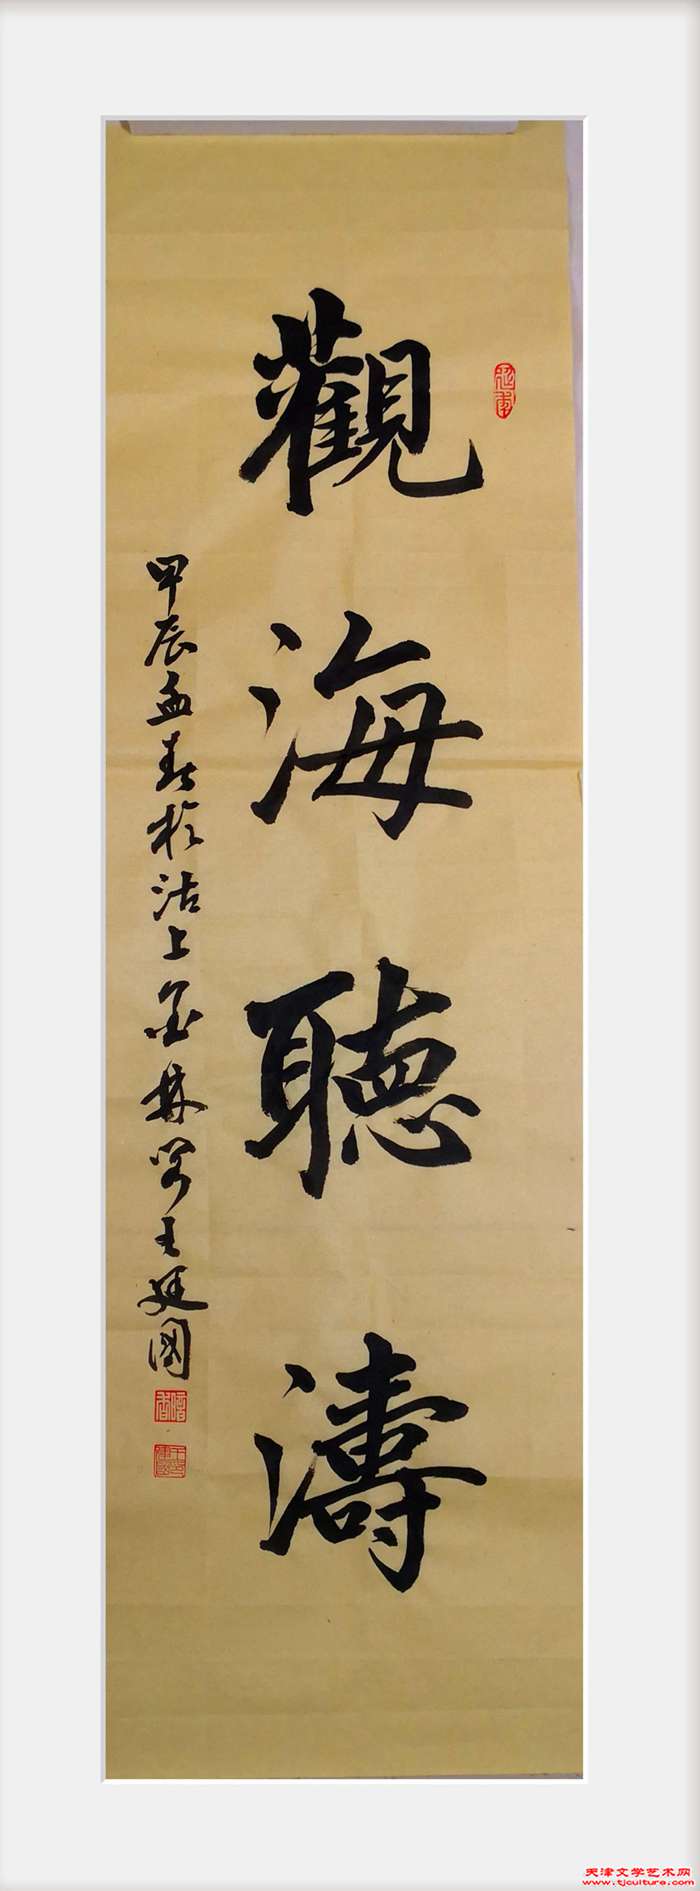 觀海聽濤
甲辰孟春於沽上金林閣王廷國
天津文学艺术网
www.tjculture.com